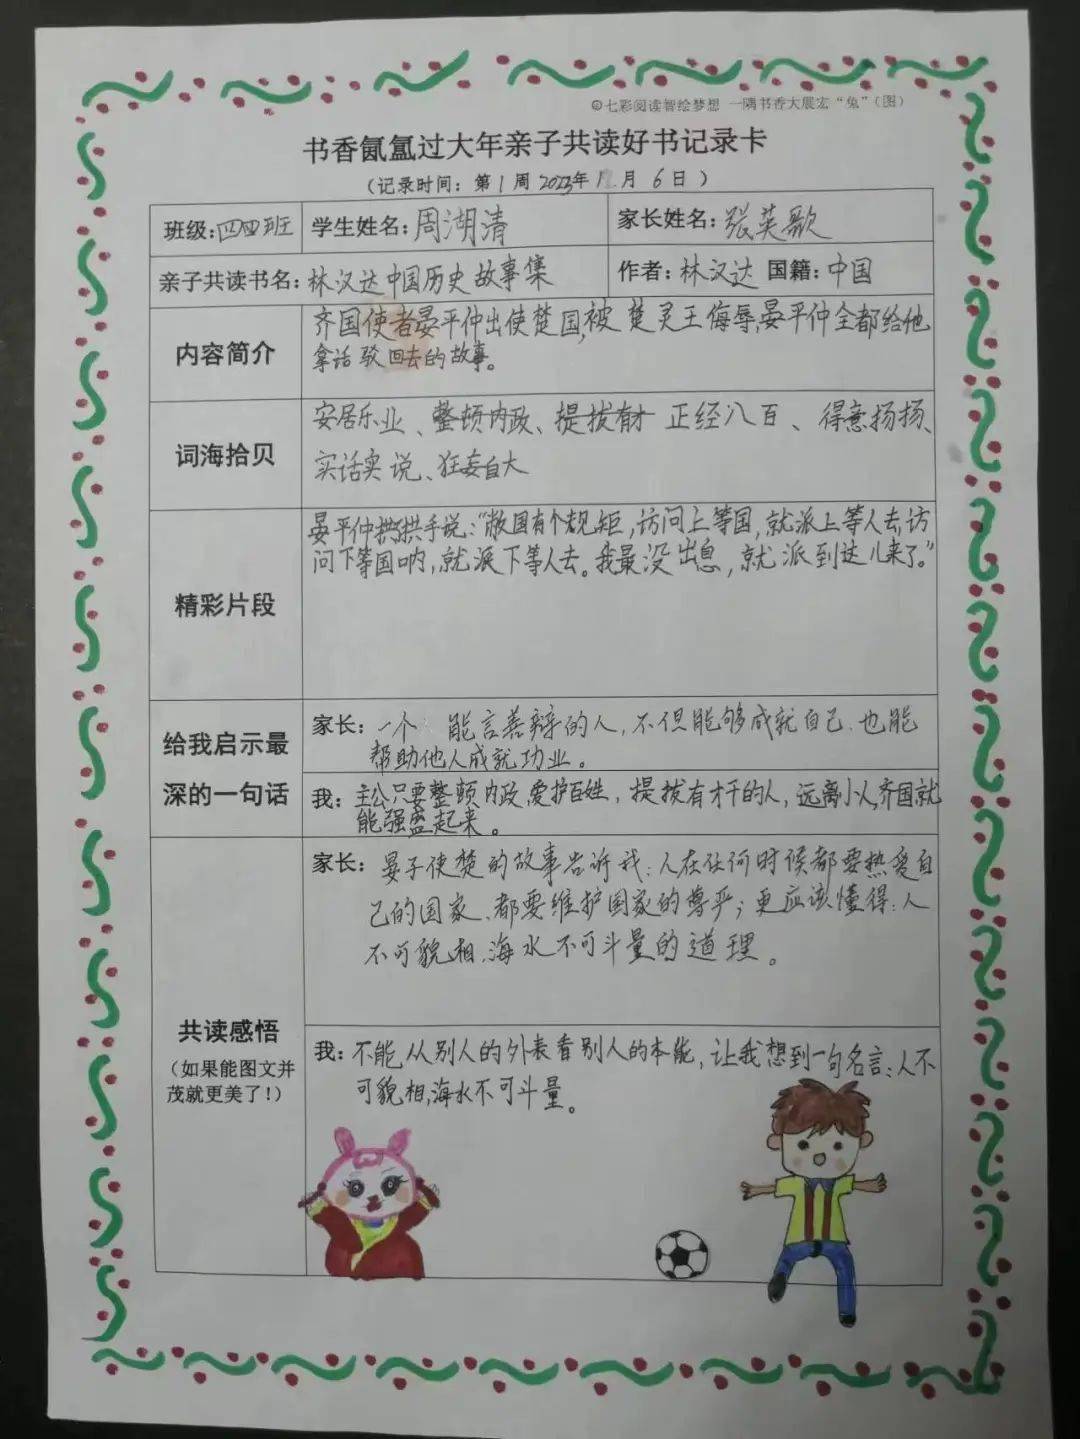 七彩阅读智绘梦想 一隅书香大展宏“兔”(图)
书香氤氲过大年亲子共读好书记录卡
(记录时间：第1周 2023年 月 6日)
班级:四四班 学生姓名:周湖清 家长姓名:张英歌
亲子共读书名:林汉达中国历史故事集 作者:林汉达 国籍:中国
内容简介
齐国使者晏平仲出使楚国,被楚灵王侮辱,晏平仲全都给他
拿话驳回去的故事。
词海拾贝
安居乐业、整顿内政、提拔有才 正经八百、得意扬扬、
实话实说、狂妄自大
精彩片段
晏平仲拱拱手说:“敝国有个规矩,访问上等国,就派上等人去,访
问下等国呐,就派下等人去。我最没出息,就派到这儿来了。”
给我启示最
深的一句话
家长：一个 能言善辩的人,不但能够成就自己、也能
帮助他人成就功业。
我：主公只要整顿内政,爱护百姓,提拔有才干的人,远离小人,齐国就
能强盛起来。
共读感悟
(如果能图文并
茂就更美了!)
家长：晏子使楚的故事告诉我:人在任何时候都要热爱自
己的国家、都要维护国家的尊严;更应该懂得:人
不可貌相、海水不可斗量的道理。
我：不能从别人的外表看别人的本能,让我想到一句名言:人不
可貌相,海水不可斗量。